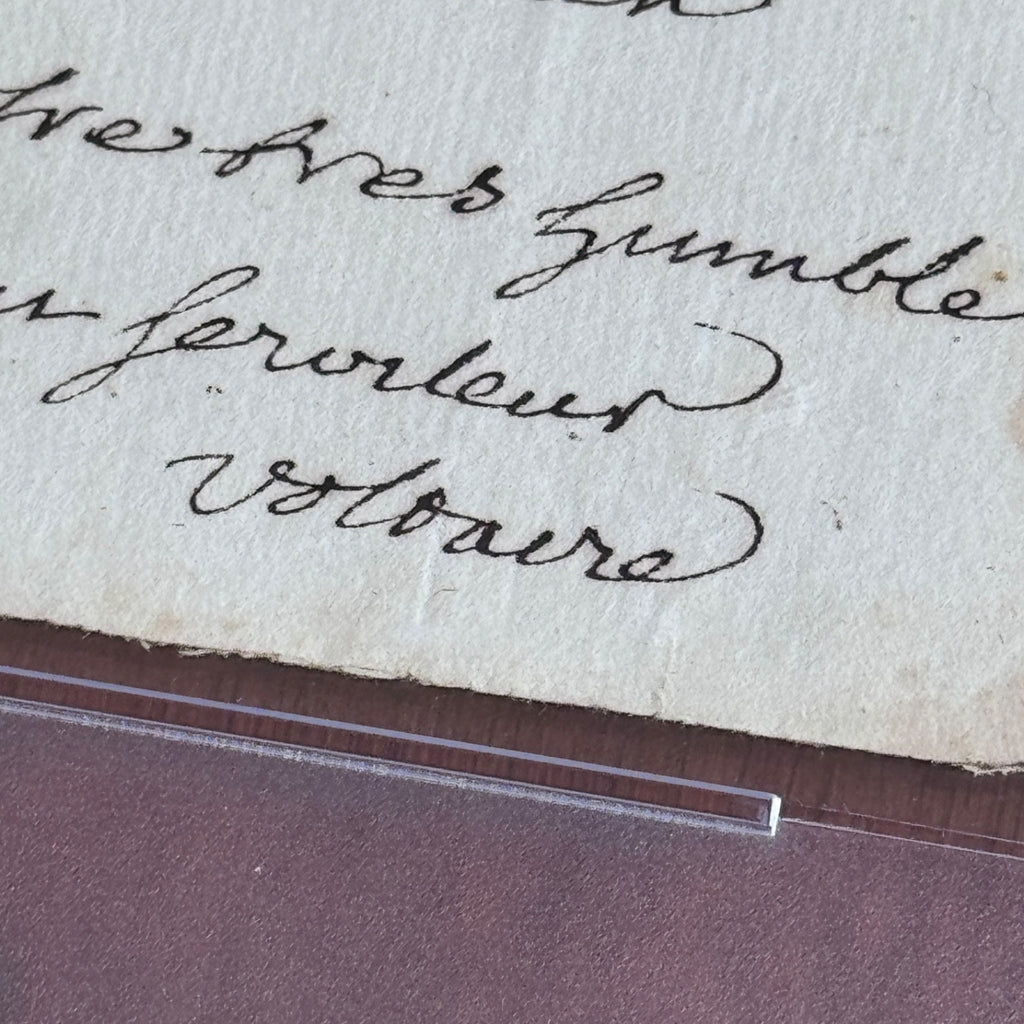 tre tres humble
serviteur
Voltaire